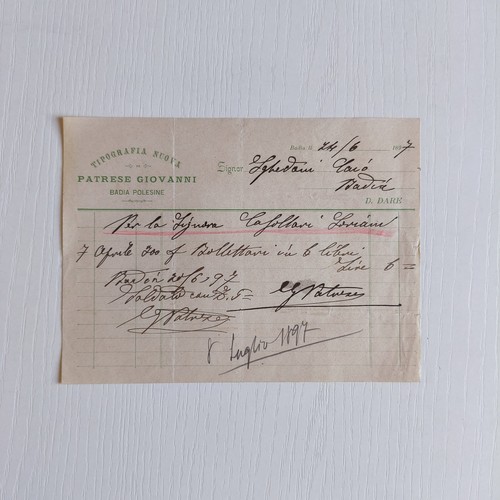 TIPOGRAFIA NUOVA
DI
PATRESE GIOVANNI
BADIA POLESINE
Badia, li 24/6 1897
Signor
Badia
D. DARE
Per la Signora
7 Aprile 200 f Bollettari in 6 libri
Lire 6 =
Badia 24/6 97
G Patrese
Saldato con L. 5 =
G Patrese
8 Luglio 1897